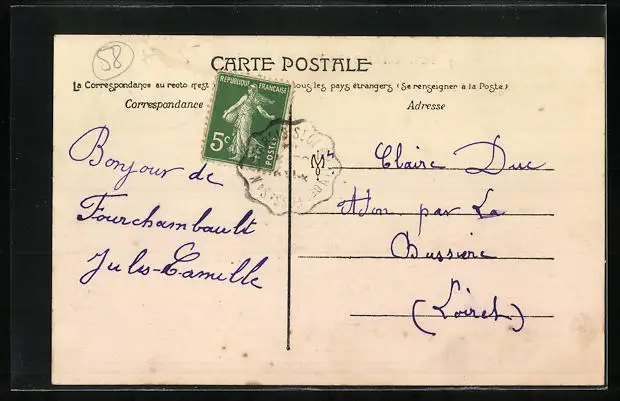 58
CARTE POSTALE
La Correspondance au recto n'est tous les pays étrangers (Se renseigner à la Poste)
Correspondance
Adresse
REPUBLIQUE FRANÇAISE
5c
POSTES
Bonjour de
Fourchambault
Jules-Camille
Claire Duc
Adon par La
Bussiere
(Loiret)